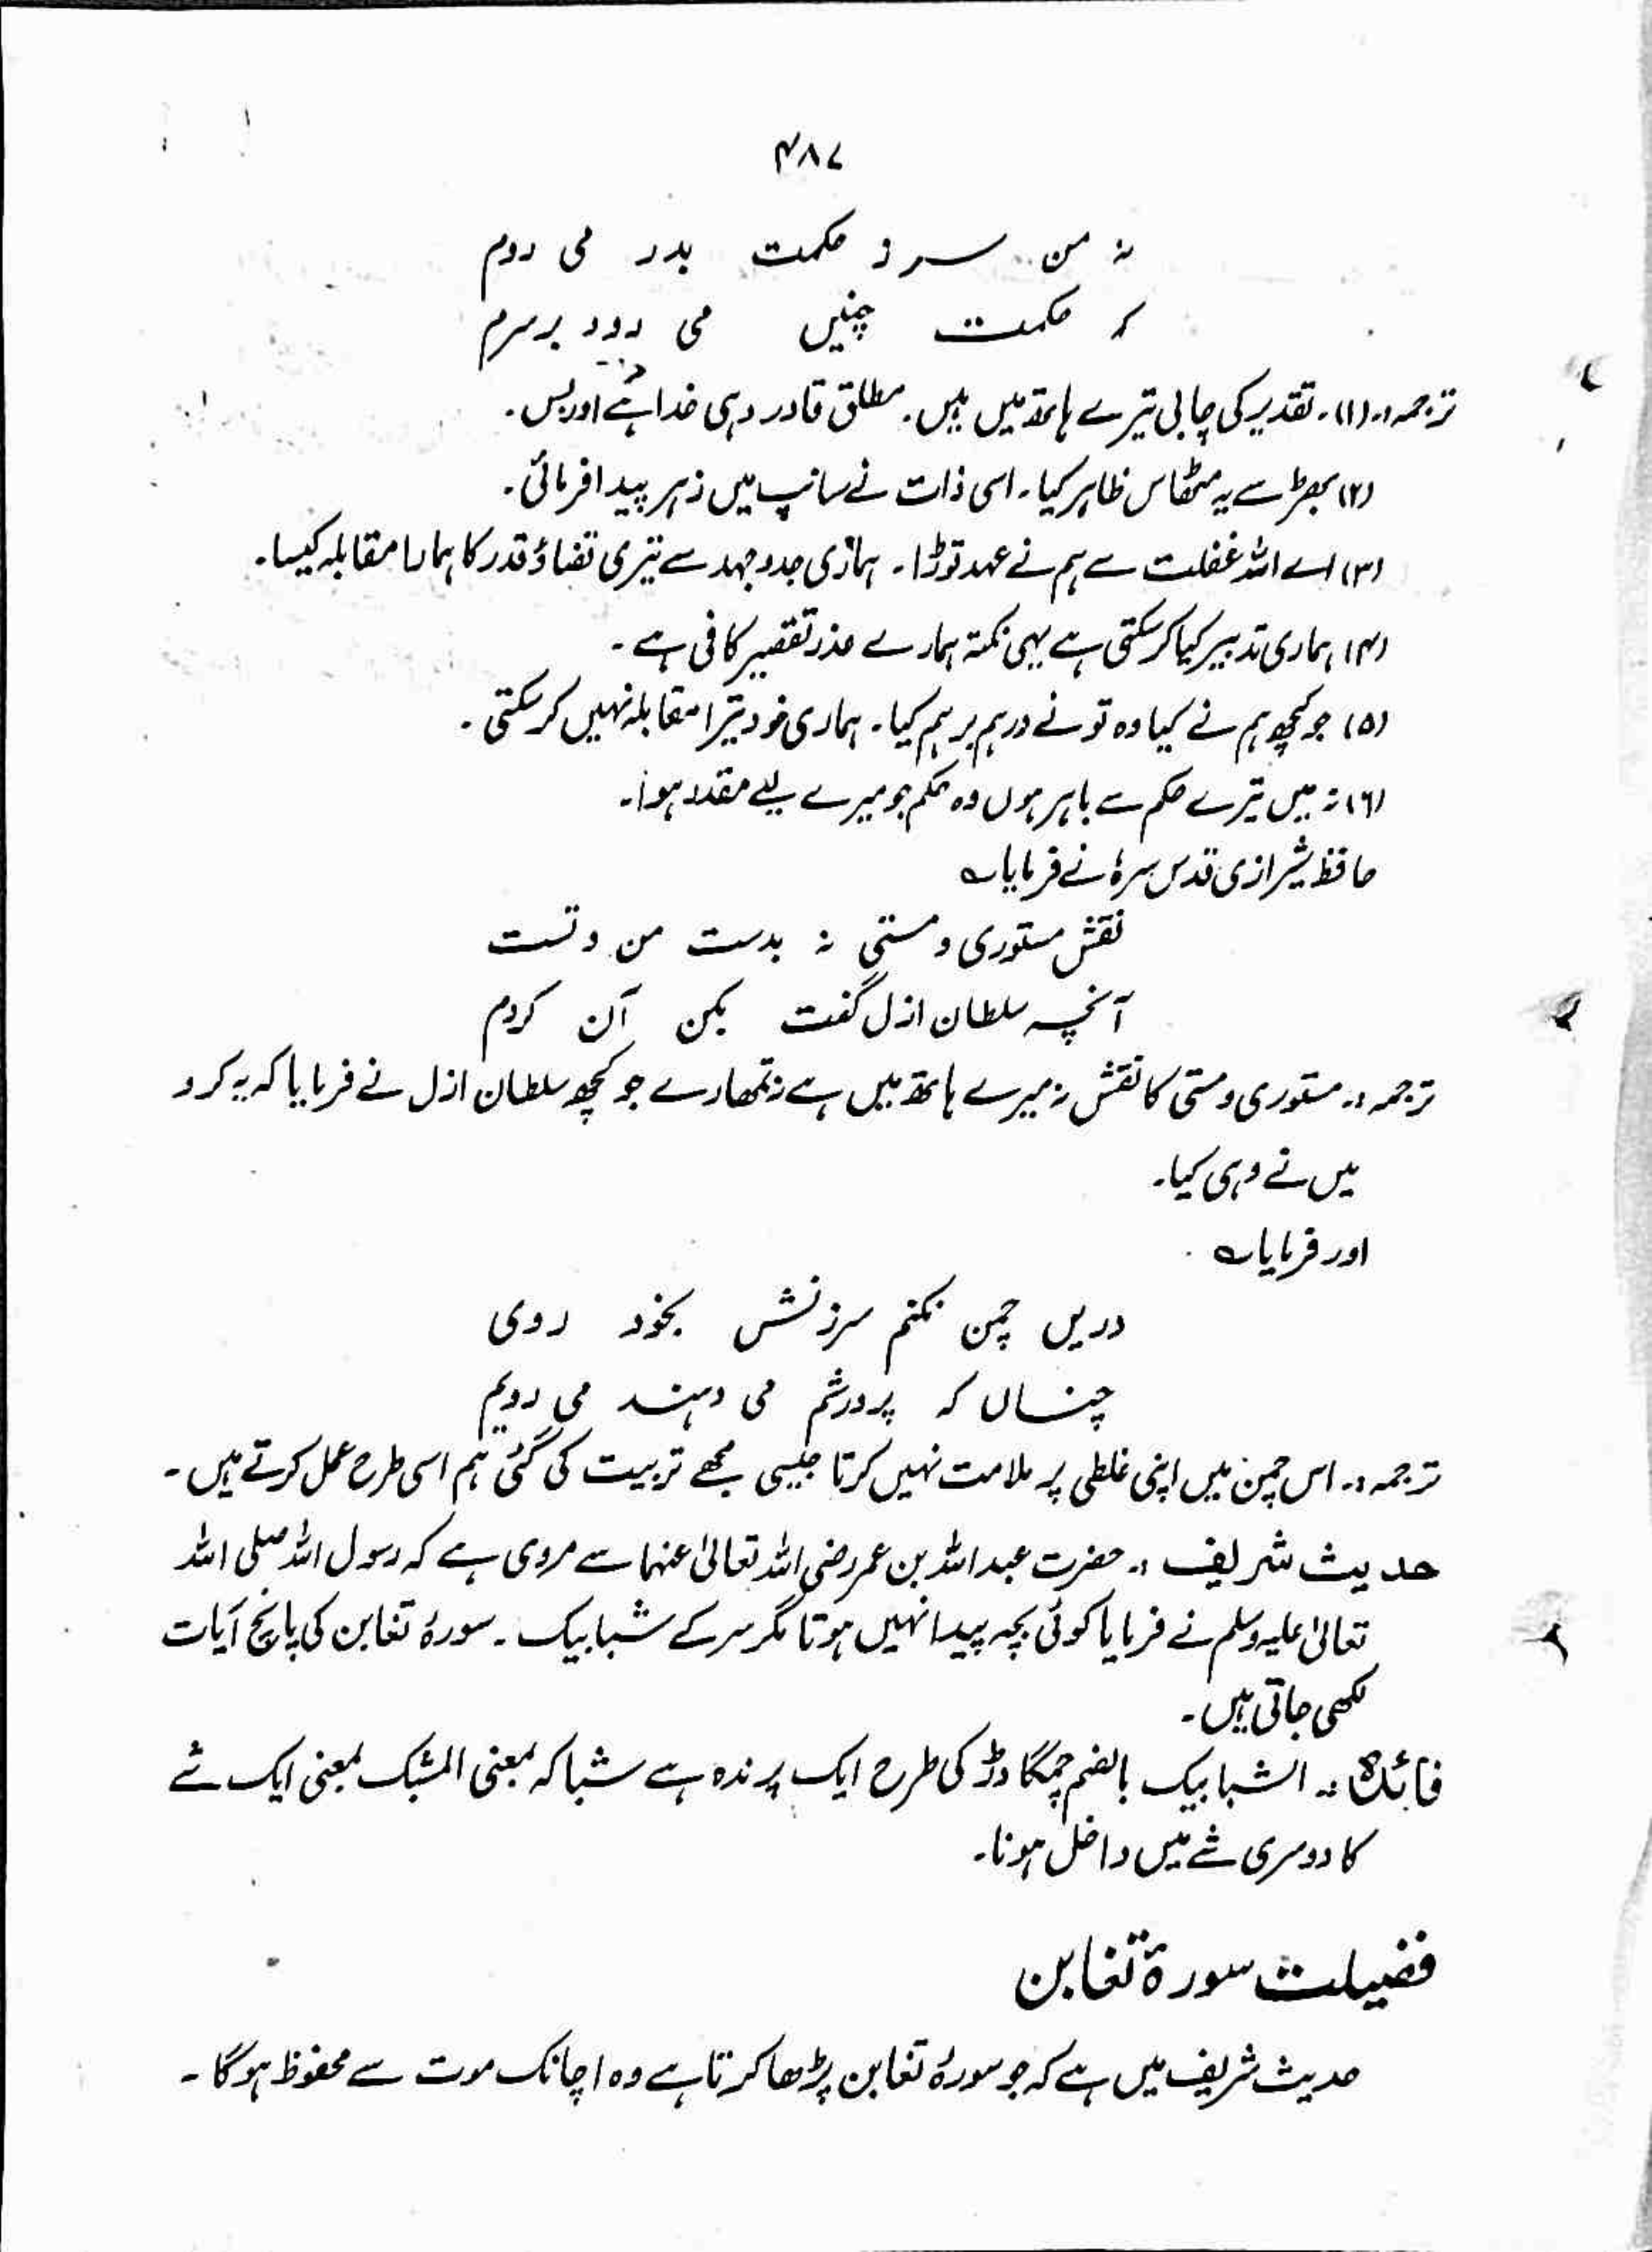 ۴۸۷
نہ من سر ز حکمت بدر می روم
کہ حکمت چنیں می رود برسرم
ترجمہ:۔ (۱)۔ تقدیر کی چابی تیرے ہاتھ میں ہیں۔ مطلق قادر وہی خدا ہے اور بس۔
(۲) بھڑ سے یہ مٹھاس ظاہر کیا۔ اسی ذات نے سانپ میں زہر پیدا فرمائی۔
(۳) اے اللہ غفلت سے ہم نے عہد توڑا۔ ہماری جدوجہد سے تیری قضاؤ قدر کا ہمارا مقابلہ کیسا۔
(۴) ہماری تدبیر کیا کرسکتی ہے یہی نکتہ ہمارے عذر تقصیر کافی ہے۔
(۵) جو کچھ ہم نے کیا وہ تو نے درہم برہم کیا۔ ہماری خود تیرا مقابلہ نہیں کرسکتی۔
(۶) نہ میں تیرے حکم سے باہر ہوں وہ حکم جو میرے لیے مقدر ہوا۔
حافظ شیرازی قدس سرہٗ نے فرمایا ؎
نقش مستوری و مستی نہ بدست من و تست
آنچہ سلطان ازل گفت بکن آن کردم
ترجمہ:۔ مستوری و مستی کا نقش نہ میرے ہاتھ میں ہے نہ تمھارے جو کچھ سلطان ازل نے فرمایا کہ یہ کرو
میں نے وہی کیا۔
اور فرمایا ؎
دریں چمن نکنم سرزنش بخود روی
چناں کہ پرورشم می دہند می رویم
ترجمہ:۔ اس چمن میں اپنی غلطی پر ملامت نہیں کرتا جیسی مجھے تربیت کی گئی ہم اسی طرح عمل کرتے ہیں۔
حدیث شریف:۔ حضرت عبد اللہ بن عمر رضی اللہ تعالیٰ عنہما سے مروی ہے کہ رسول اللہ صلی اللہ
تعالیٰ علیہ وسلم نے فرمایا کوئی بچہ پیدا نہیں ہوتا مگر سر کے شبابیک۔ سورۂ تغابن کی پانچ آیات
لکھی جاتی ہیں۔
فائدہ:۔ الشبابیک بالضم چمگادڑ کی طرح ایک پرندہ ہے شباکہ بمعنی المشبک بمعنی ایک شے
کا دوسری شے میں داخل ہونا۔
فضیلت سورۃ تغابن
حدیث شریف میں ہے کہ جو سورۂ تغابن پڑھا کرتا ہے وہ اچانک موت سے محفوظ ہوگا۔